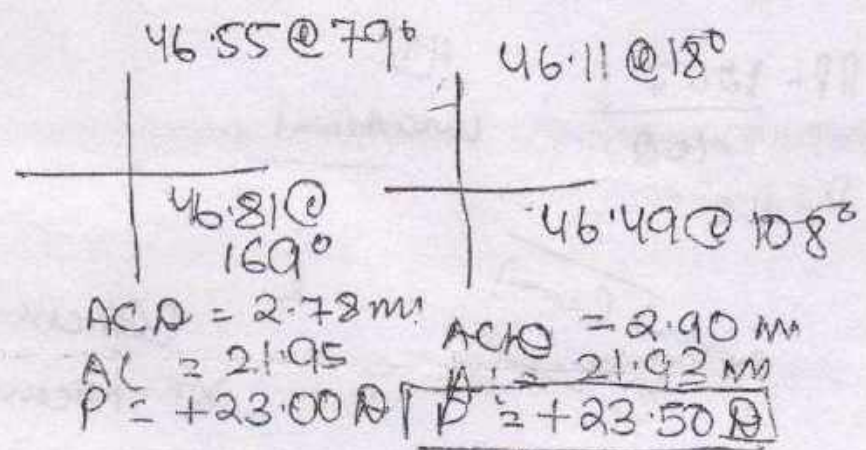 46.55@79°
46.81@
169°
ACD = 2.78m
AL = 21.95
P = +23.00D
46.11@18°
46.49@108°
ACD = 2.90 m
= 21.93 m
P = +23.50D